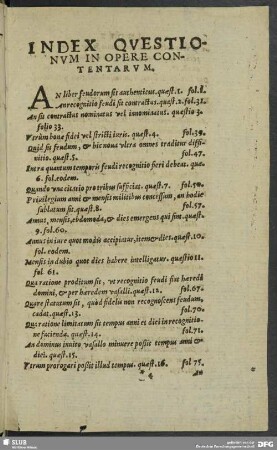 INDEX QVESTIO-
NVM IN OPERE CON-
TENTARVM.
AN liber feudorum sit authenticus. quæst.1. fol.8.
An recognitio feudi sit contractus. quæst.2. fol.31.
An sit contractus nominatus vel innominatus. quæstio 3.
folio 33.
Vtrùm bonæ fidei vel stricti iuris. quæst.4. fol.39.
Quid sit feudum, & hic noua vltra omnes traditur diffi-
nitio. quæst.5. fol.47.
Intra quantum temporis feudi recognitio fieri debeat. quæ-
st. 6. fol. eodem.
Quando vna citatio pro tribus sufficiat. quæst.7. fol.50.
Priuilegium anni & mensis militibus concessum, an hodie
sublatum sit. quæst.8. fol.57.
Annus, mensis, ebdomoda, & dies emergens qui sint. quæst.
9. fol.60.
Annus in iure quot modis accipiatur, item & dies. quæst.10.
fol. eodem.
Mensis in dubio quot dies habere intelligatur. quæstio 11.
fol. 61.
Qua ratione proditum sit, vt recognitio feudi fiat hæredi
domini, & per hæredem vasalli. quæst.12. fol.67.
Quare statutum sit, quòd fidelis non recognoscens feudum,
cadat. quæst.13. fol.70.
Qua ratione limitatum sit tempus anni et diei in recognitio-
ne facienda. quæst.14. fol.71.
An dominus inuito vasallo minuere possit tempus anni &
diei. quæst.15.
Vtrum prorogari possit illud tempus. quæst.16. fol 75.
* 4 An
SLUB
DFG